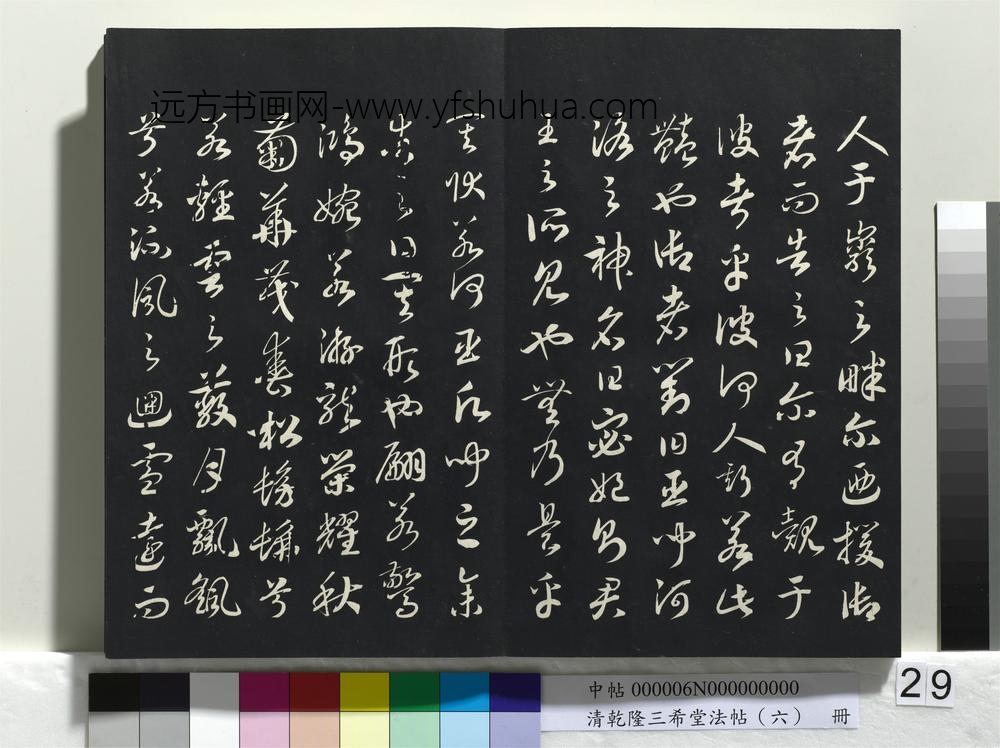 远方书画网-www.yfshuhua.com
人于巖之畔尔迺援御
者而告之曰尔有覿于
彼者乎彼何人斯若此
豔也御者對曰臣聞河
洛之神名曰宓妃則君
王之所見也無乃是乎
其狀若何臣願聞之余
告之曰其形也翩若驚
鴻婉若游龍榮耀秋
菊華茂春松髣髴兮
若輕雲之蔽月飄飖
兮若流風之迴雪遠而
中帖 000006N000000000
清乾隆三希堂法帖（六） 冊
29